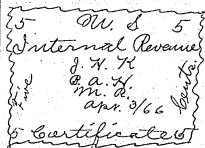 5 U. S 5
Internal Revenue
J. K. K
P. A. H.
M. R.
Apr. 3/66
Five Cents
5 Certificate 5